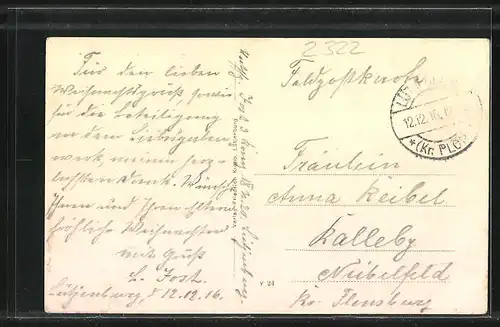 2322
Für den lieben
Weihnachtsgruß, sowie
für die Beteiligung
an dem Liebesgaben-
werk meinen herz-
lichsten Dank. Wünsche
Ihnen und Ihren Eltern
fröhliche Weihnachten
mit Gruß
L. Jost.
Lütjenburg, d 12.12.16.
Feldpostkarte
12.12.16.
*(Kr. PLÖN
Fräulein
Anna Keibel
Kalleby
Nübelfeld
Kr. Flensburg
Y 24